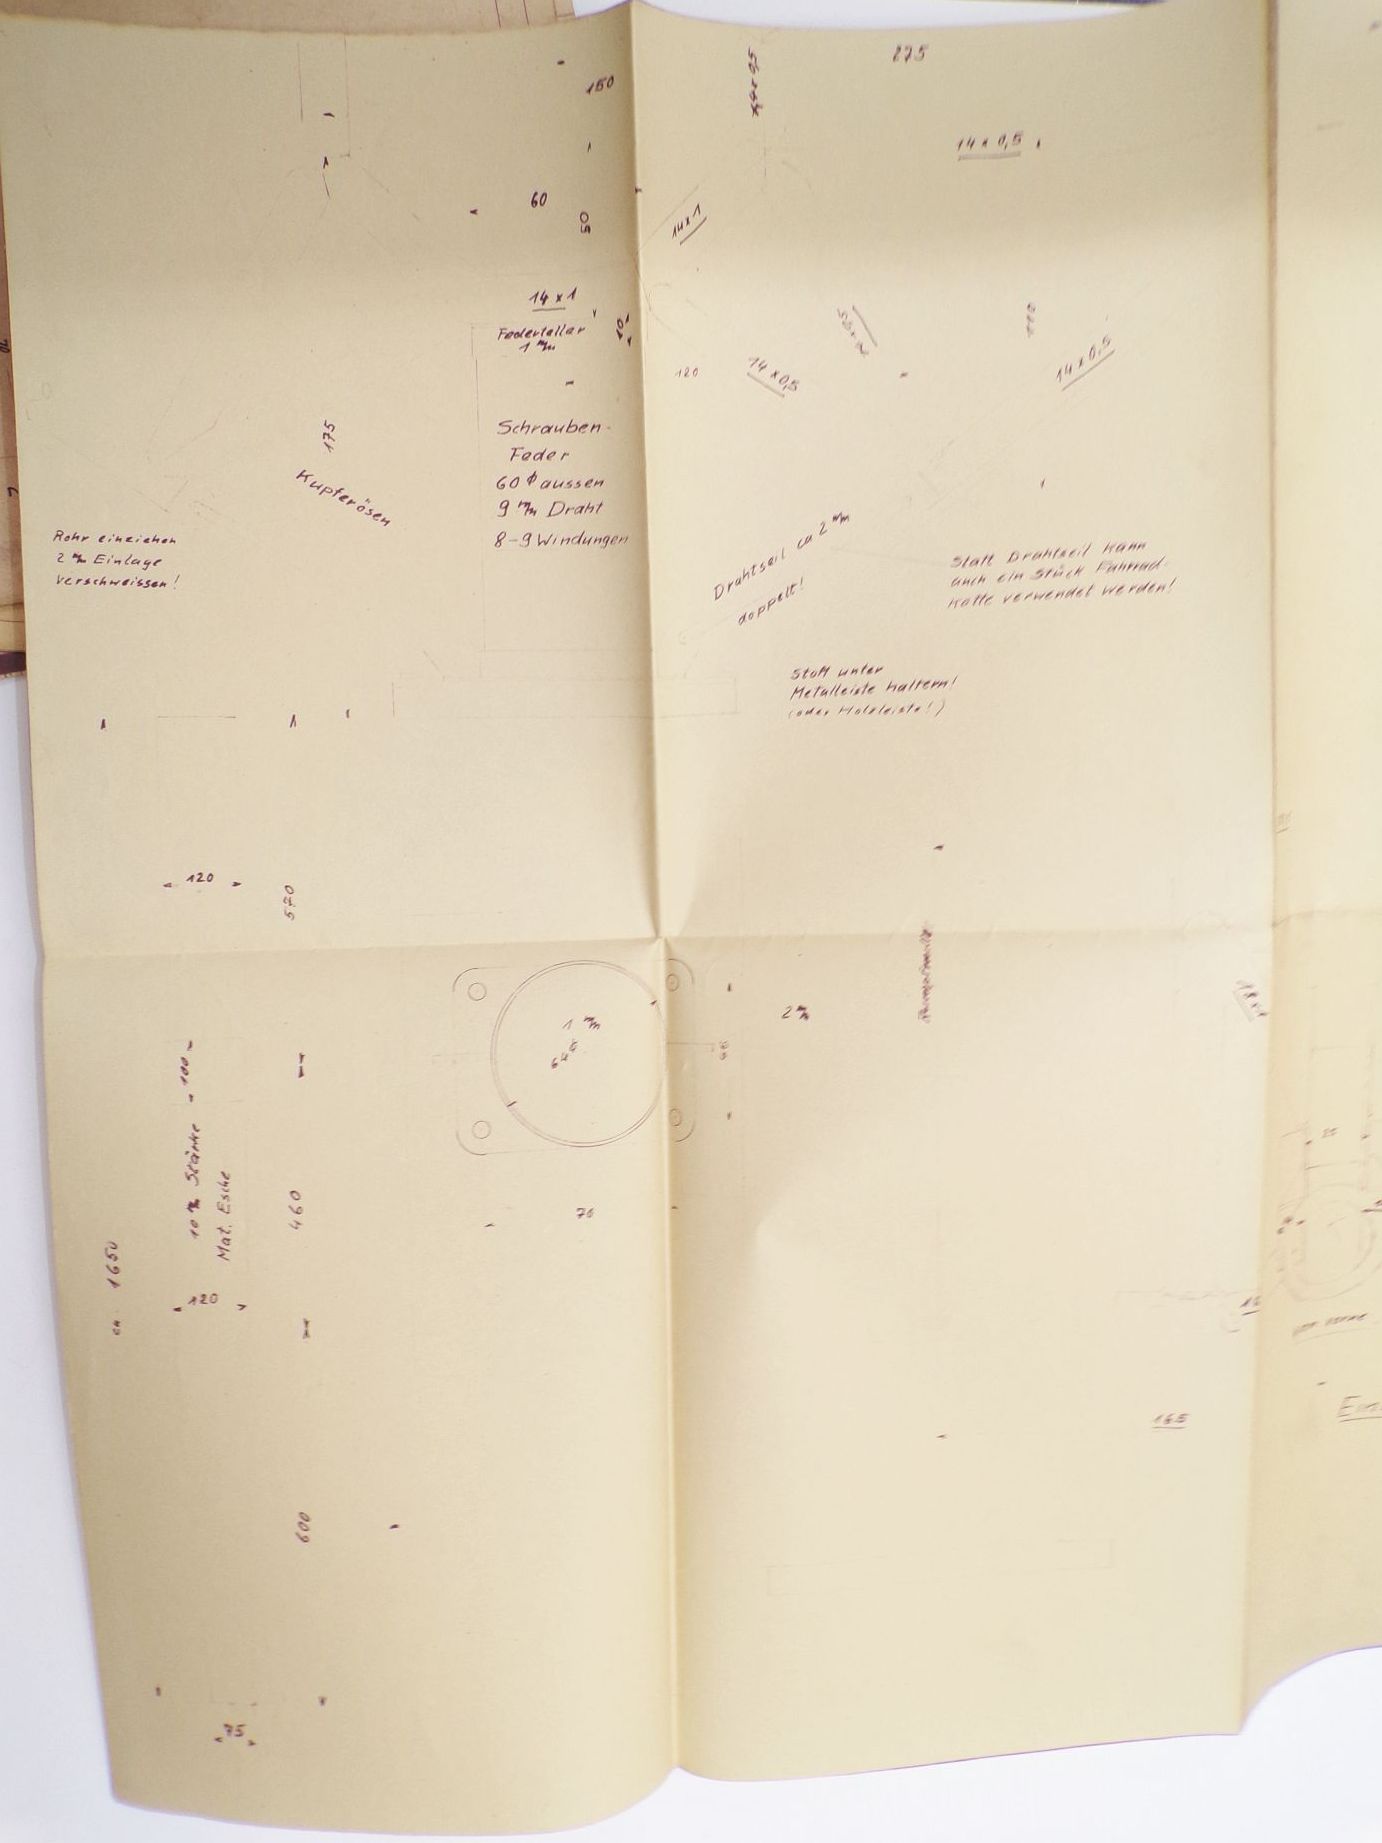 275
150
14 x 0,5
60
50
14 x 1
14 x 1
Federteller
1 m/m
10
120
14 x 0,5
14 x 0,5
175
Kupferösen
Schrauben-
Feder
60 ϕ aussen
9 m/m Draht
8-9 Windungen
Rohr einziehen
2 m/m Einlage
verschweissen!
Drahtseil ca 2 m/m
doppelt!
Statt Drahtseil kann
auch ein Stück Fahrrad-
kette verwendet werden!
Stoff unter
Metalleiste haltern!
(oder Holzleiste!)
120
570
1 m/m
2 m/m
100
10 m/m Stärke
Mat. Esche
460
76
ca. 1650
120
165
600
75